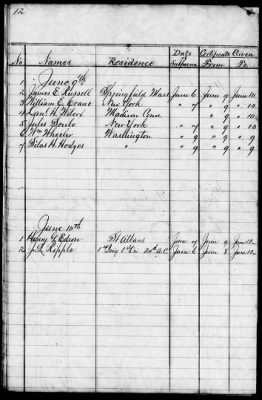 12
No Names Residence Date Subpoena Certificate From Given To
June 9th
1
2 James E. Russell Springfield Mass June 6 June 9 June 10
3 William E. Crane New York " 7 " 9 " 10
4 " 9 " 10
5 New York " 7 " 9 " 10
6 Wm Wheeler Washington " 9 " 9 " 10
7 Silas H. Hodges " 9 " 9 " 10
June 10th
1 Henry G. Edson St Albans June 7 June 9 June 12
2 1st 20th A.C. June 6 June 8 June 12